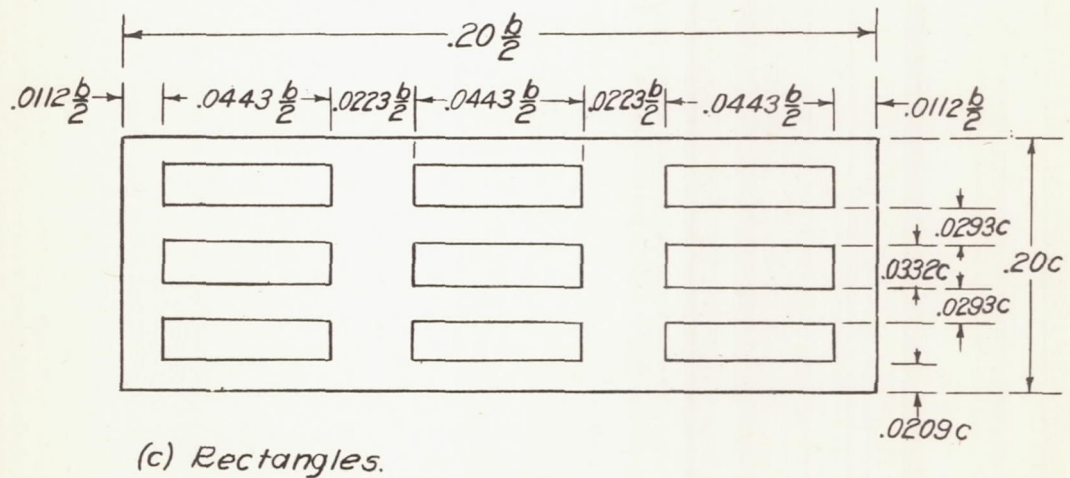 .20 b/2
.0112 b/2 .0443 b/2 .0223 b/2 .0443 b/2 .0223 b/2 .0443 b/2 .0112 b/2
.0293c
.0332c .20c
.0293c
.0209c
(c) Rectangles.